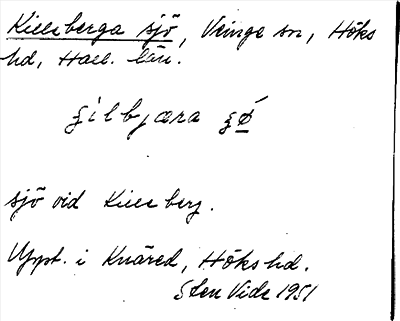 Killsberga sjö, Veinge sn, Höks
hd, Hall. län.
ʂilbjæra ʂǿ
sjö vid Killsberg.
Uppt. i Knäred, Höks hd.
Sten Vide 1951